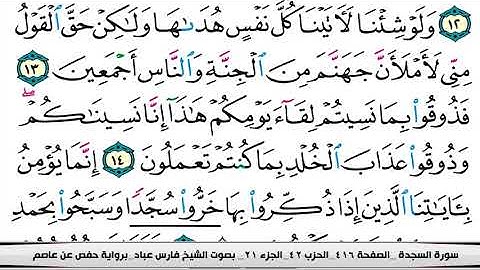 ١٢ وَلَوْ شِئْنَا لَـَٔاتَيْنَا كُلَّ نَفْسٍ هُدَىٰهَا وَلَـٰكِنْ حَقَّ ٱلْقَوْلُ
مِنِّى لَأَمْلَأَنَّ جَهَنَّمَ مِنَ ٱلْجِنَّةِ وَٱلنَّاسِ أَجْمَعِينَ ١٣
فَذُوقُوا۟ بِمَا نَسِيتُمْ لِقَآءَ يَوْمِكُمْ هَـٰذَآ إِنَّا نَسِينَـٰكُمْ ۖ
وَذُوقُوا۟ عَذَابَ ٱلْخُلْدِ بِمَا كُنتُمْ تَعْمَلُونَ ١٤ إِنَّمَا يُؤْمِنُ
بِـَٔايَـٰتِنَا ٱلَّذِينَ إِذَا ذُكِّرُوا۟ بِهَا خَرُّوا۟ سُجَّدًا وَسَبَّحُوا۟ بِحَمْدِ
سورة السجدة _الصفحة ٤١٦_ الحزب ٤٢_ الجزء ٢١_ بصوت الشيخ فارس عباد_برواية حفص عن عاصم